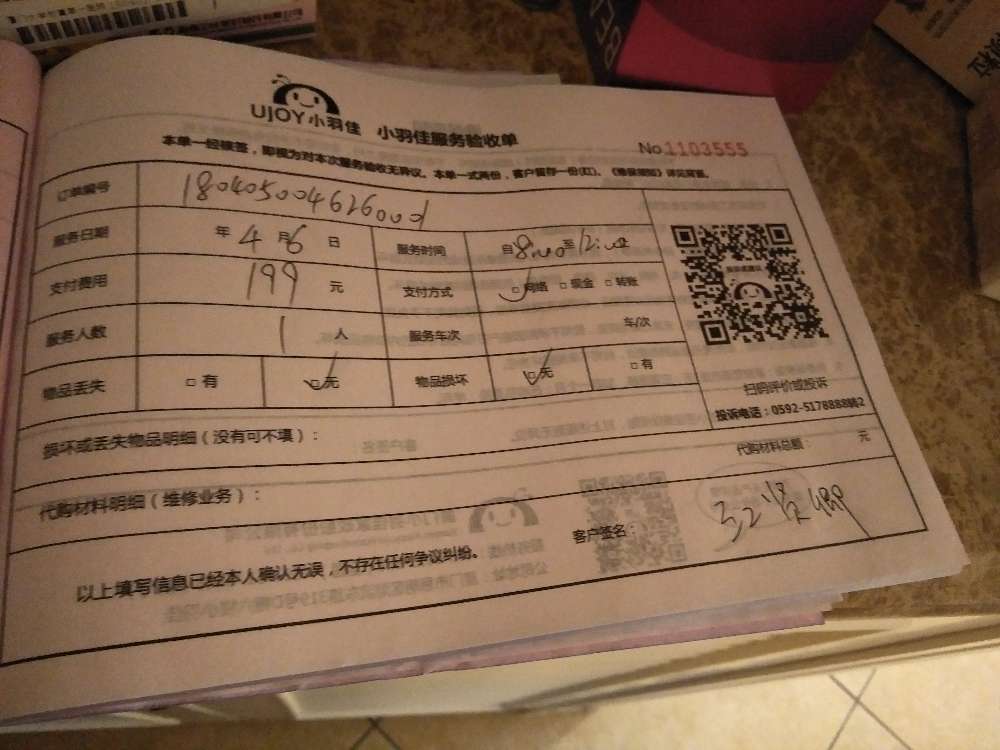 UJOY小羽佳 小羽佳服务验收单
No.1103555
本单一经核签，即视为对本次服务验收无异议。本单一式两份，客户留存一份(红)。《维保须知》详见背面。
订单编号 180405004626000
服务日期 年 4 月 6 日 服务时间 自 8:00 至 12:00
支付费用 199 元 支付方式 □网络 □现金 □转账
服务人数 1 人 服务车次 车/次
物品丢失 □有 □无 物品损坏 □无 □有
扫码评价或投诉
投诉电话：0592-5178888转2
损坏或丢失物品明细（没有可不填）：
代购材料总额： 元
代购材料明细（维修业务）：
客户签名：
以上填写信息已经本人确认无误，不存在任何争议纠纷。